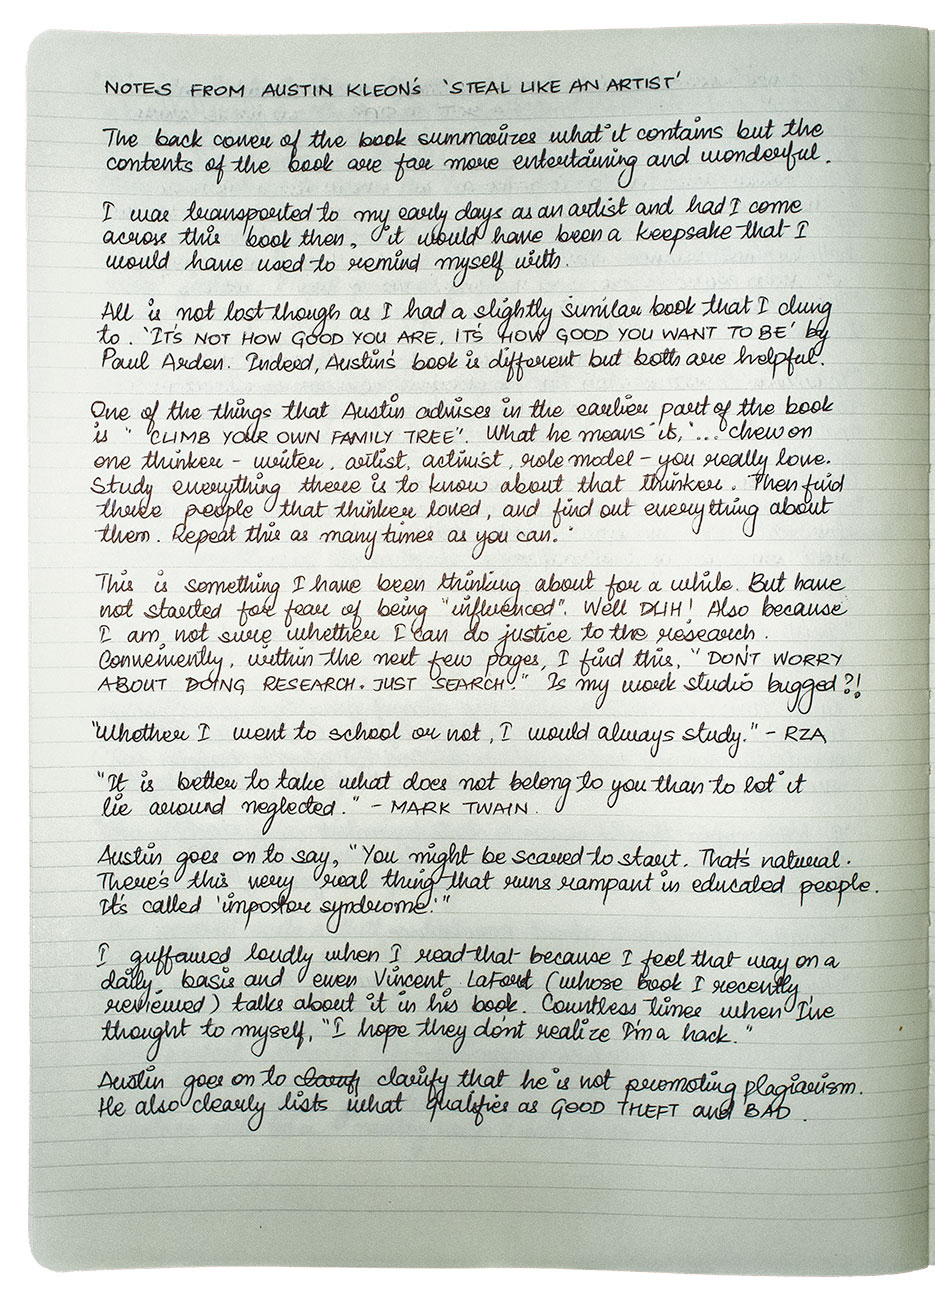 NOTES FROM AUSTIN KLEON'S 'STEAL LIKE AN ARTIST'
The back cover of the book summarizes what it contains but the
contents of the book are far more entertaining and wonderful.
I was transported to my early days as an artist and had I come
across this book then, it would have been a keepsake that I
would have used to remind myself with.
All is not lost though as I had a slightly similar book that I clung
to. 'IT'S NOT HOW GOOD YOU ARE, IT'S HOW GOOD YOU WANT TO BE' by
Paul Arden. Indeed, Austin's book is different but both are helpful.
One of the things that Austin advises in the earlier part of the book
is " CLIMB YOUR OWN FAMILY TREE". What he means is, '... chew on
one thinker - writer, artist, activist, role model - you really love.
Study everything there is to know about that thinker. Then find
three people that thinker loved, and find out everything about
them. Repeat this as many times as you can."
This is something I have been thinking about for a while. But have
not started for fear of being "influenced". Well DUH! Also because
I am not sure whether I can do justice to the research.
Conveniently, within the next few pages, I find this, "DON'T WORRY
ABOUT DOING RESEARCH. JUST SEARCH." Is my work studio bugged?!
"Whether I went to school or not, I would always study." - RZA
"It is better to take what does not belong to you than to let it
lie around neglected." - MARK TWAIN.
Austin goes on to say, "You might be scared to start. That's natural.
There's this very real thing that runs rampant in educated people.
It's called 'impostor syndrome.'"
I guffawed loudly when I read that because I feel that way on a
daily basis and even Vincent (whose book I recently
reviewed) talks about it in his book. Countless times when I've
thought to myself, "I hope they don't realize I'm a hack."
Austin goes on to clarify that he is not promoting plagiarism.
He also clearly lists what qualifies as GOOD THEFT and BAD.